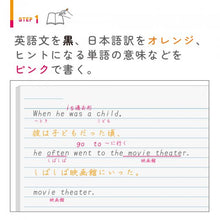 STEP 1
英語文を黒、日本語訳をオレンジ、
ヒントになる単語の意味などを
ピンクで書く。
isの過去形
When he was a child.
〜とき こども
彼は子どもだった頃、
go to 〜に行く
he often went to the movie theater.
しばしば 映画館
しばしば映画館にいった。
movie theater.
映画館